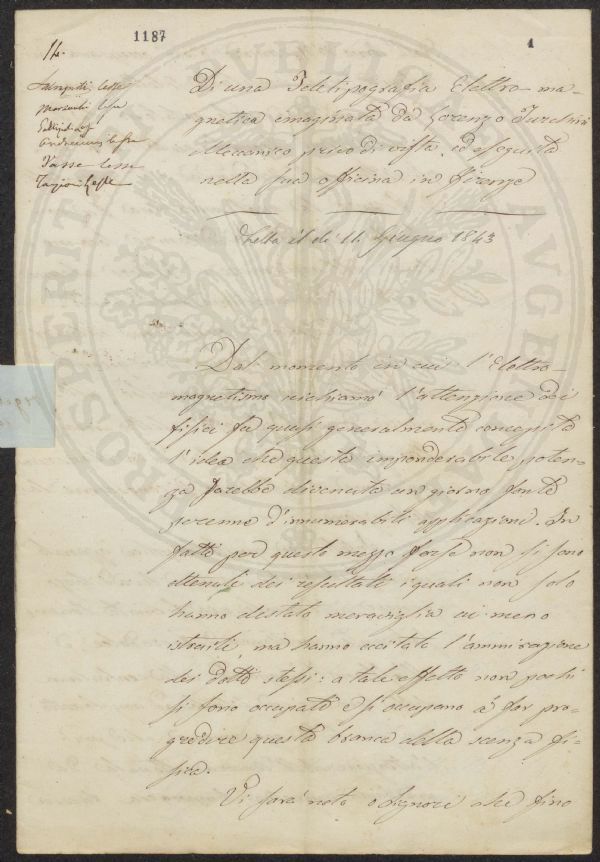 1187
1
14.
lesse
lesse
lesse
lesse
Di una Teletipografia Elettro-ma-
gnetica immaginata da Lorenzo Turchini
Meccanico privo di vista, ed eseguita
nella sua officina in Firenze
Letta il dì 11. Giugno 1843
Dal momento in cui l'Elettro-
magnetismo richiamò l'attenzione dei
fisici fu quasi generalmente concepita
l'idea che questa imponderabile poten-
za sarebbe divenuta un giorno fonte
perenne d'innumerabili applicazioni. In
fatti per questo mezzo forse non si sono
ottenuti dei resultati i quali non solo
hanno destato meraviglia ai meno
istruiti, ma hanno eccitato l'ammirazione
dei dotti stessi: a tale effetto non pochi
si sono occupati e si occupano á far pro-
gredire questa branca della scenza fi-
sica.
Vi sarà noto o Signori che fino
PROSPERITATI AVGENDAE